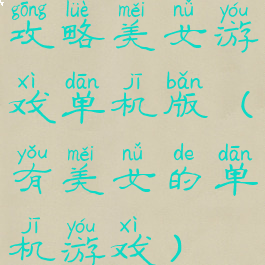 gōng lüè měi nǚ yóu
攻略美女游
xì dān jī bǎn
戏单机版（
yǒu měi nǚ de dān
有美女的单
jī yóu xì
机游戏）